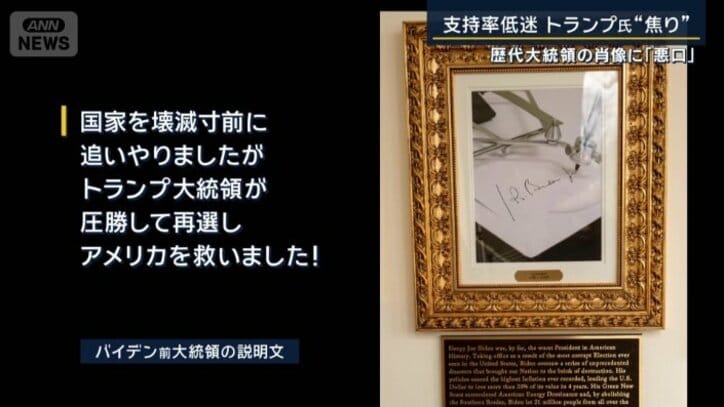 ANN
NEWS
支持率低迷 トランプ氏“焦り”
歴代大統領の肖像に「悪口」
国家を壊滅寸前に
追いやりましたが
トランプ大統領が
圧勝して再選し
アメリカを救いました!
バイデン前大統領の説明文
Sleepy Joe Biden was, by far, the worst President in American
History. Taking office as a result of the most corrupt Election ever
seen in the United States, Biden oversaw a series of unprecedented
disasters that brought our Nation to the brink of destruction. His
policies caused the highest Inflation ever recorded, leading the U.S.
Dollar to lose more than 20% of its value in 4 years. His Green New
Scam surrendered American Energy Dominance and, by abolishing
the Southern Border, Biden let 21 million people from all over the